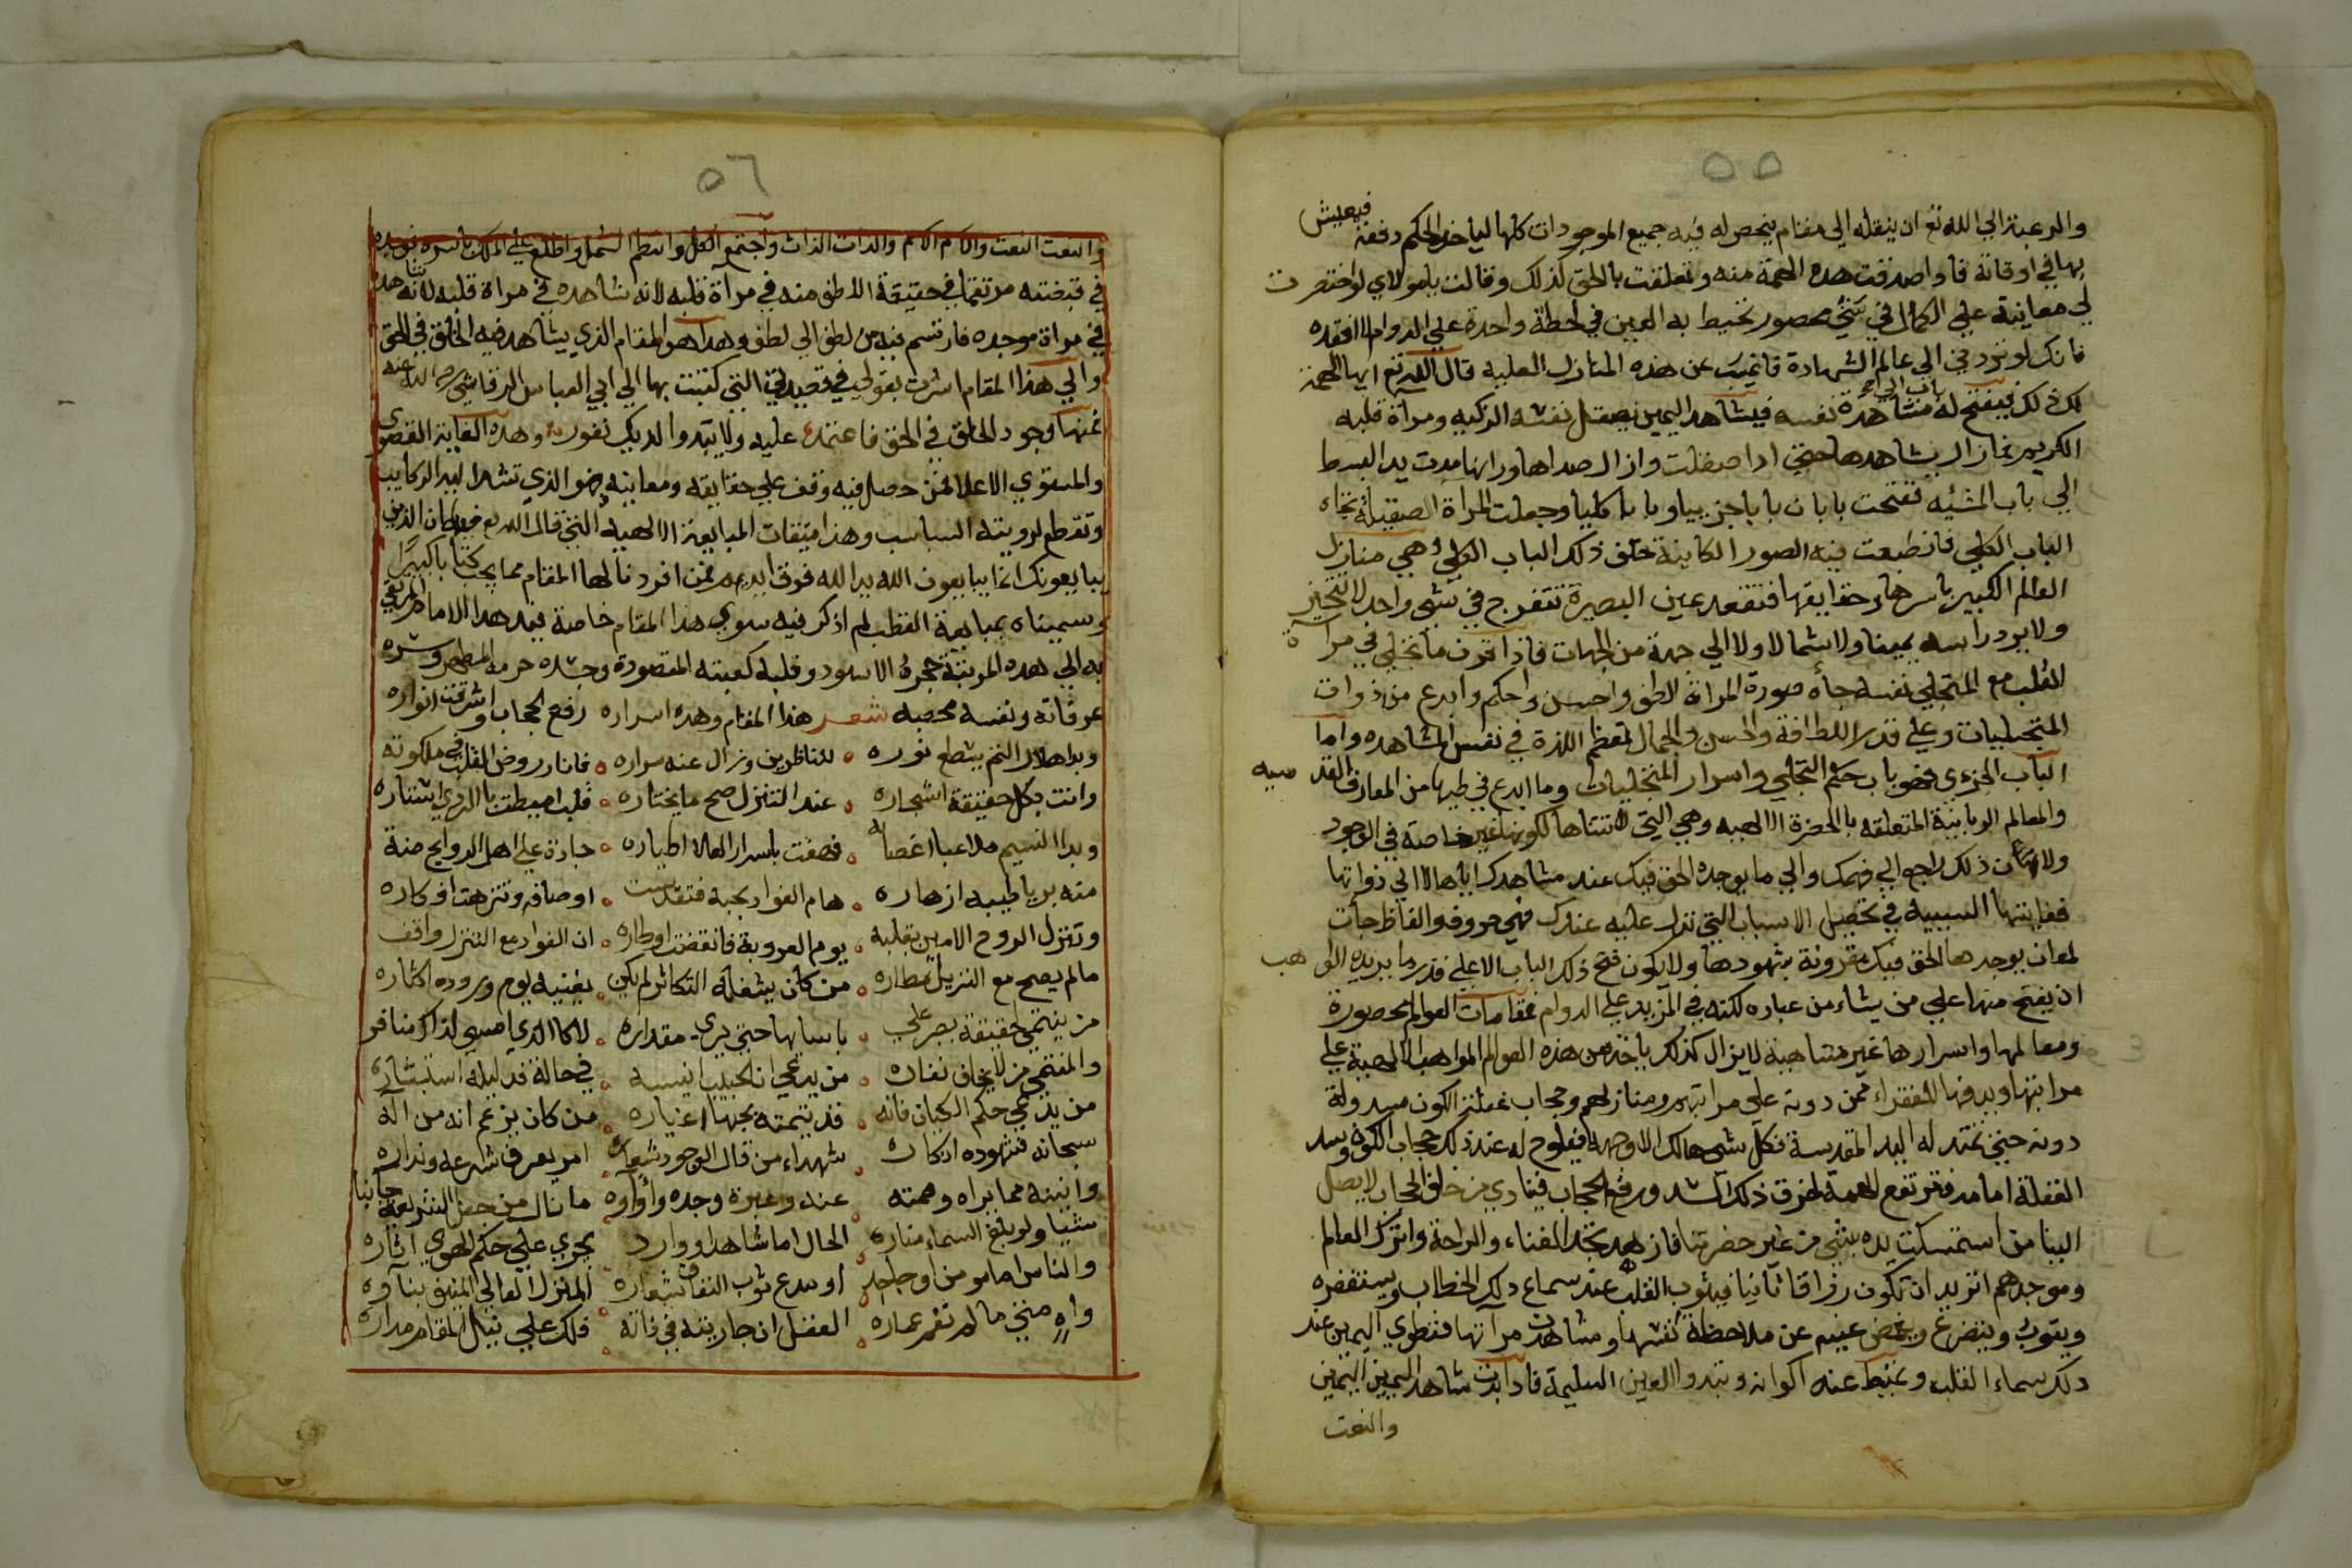 ٥٥
والرغبة الي الله تع ان ينقله الي مقام يحصل له فيه جميع الموجودات كلها لياخذ الحكم دفعة فيعيش
بها في اوقاته فاذا صدقت هذه الهمة منه وتعلقت بالحق كذلك وقالت يا مولاي لو اختصرت
لي معاينة علي الكمال في شي محصور تحيط به العين في لحظة واحدة علي الدوام لا افقده
فانك لو تردني الي عالم الشهادة فاتميت عن هذه المنازل العلية قال الله تع ايها الهمة
لك ذلك فيفتح له مشاهدة نفسه فيشاهد اليمين يصقل نفسه الزكيه ومرآة قلبه
الكريم فما زال يشاهدها حتي اذا صقلت وازال صداها ورانها مدت يد البسط
الي باب المشيه ففتحت بابان بابا جزييا وبابا كليا وجعلت المرآة الصقيلة تجاه
الباب الكلي فانطبعت فيه الصور الكاينة خلف ذلك الباب الكلي وهي منازل
العالم الكبير باسرها وحقايقها فتقعد عين البصيرة تتفرج في شي واحد لا تتحير
ولا يرد راسه يمينا ولا شمالا ولا الي جهة من الجهات فاذا قرن ما تجلي في مرآة
القلب مع المتجلي نفسه جأه صورة المرآة الطف واحسن واحكم وابدع من ذوات
المتجليات وعلي قدر اللطافة والحسن والجمال تعظم اللذة في نفس المشاهده واما
الباب الجزءي فهو باب حكم التجلي واسرار المتجليات وما ابدع في طيها من المعارف القدسيه
والمعالم الربانية المتعلقه بالحضرة الالهيه وهي التي لا تتناها لكونها غير خاصة في الوجود
ولان ذلك راجع الي فهمك والي ما يوجده الحق فيك عند مشاهدك اياها لا الي ذواتها
فغايتها السببيه في تحصيل الاسباب التي تدل عليه عندك فهي حروف والفاظ جأت
لمعان يوجدها الحق فيك مقرونة بشهودها ولا يكون فتح ذلك الباب الاعلي قدر ما يريده الواهب
ان يفتح منها علي من يشاء من عباده لكنه في المزيد علي الدوام فمقامات العوالم محصورة
ومعالمها واسرارها غير متناهية لا يزال كذلك ياخذ من هذه العوالم المواهب الالهية علي
مراتبها ويدفعها للفقراء ممن دونه علي مراتبهم ومنازلهم وحجاب غفلتة الكون مسدولة
دونه حتي تمتد له اليد المقدسة فكل شي هالك الا وجهه فيلوح له عند ذلك حجاب الكون وسد
الغفلة امامه فترتفع الهمة لخرق ذلك السد ورفع الحجاب فينادي من خلف الحجاب لا يصل
الينا من استمسكت يده بشي من غير حضرتنا فازهد تجد الغناء والراحة واترك العالم
وموجدهم اتريد ان تكون رزاقا ثانيا فيئوب القلب عند سماع ذلك الخطاب ويستغفره
ويتوب ويتضرع ويغض عينيه عن ملاحظة نفسها ومشاهدت مرآتها فتطوي اليمين عند
ذلك سماء القلب وغبط عنه اكوانه وتبدوا العين السليمة فاذا بدت شاهد اليمين اليمين
والنعت
٥٦
والنعت النعت والاسم الاسم والذات الذات واجتمع الكل وانتظم الشمل واطلع علي الملك باسره توجده
في قبضته مرتقما في حقيقة الاطف منه في مرآة قلبه لانه شاهده في مراة قلبه لانه شاهده
في مراة موجده فارتسم فيه من لطف الي لطف وهذا هو المقام الذي يشاهد فيه الخلق في الحق
والي هذا المقام اشرت بقولي في قصيدتي التي كتبت بها الي ابي العباس الدقاشي رضي الله عنه
فمنها وجود الخلق في الحق فاعتمد عليه ولا يبدوا لديك نفور وهذه الغاية القصوي
والمستوي الاعلا لمن حصل فيه وقف علي حقايقه ومعانيه فهو الذي تشد اليه الركايب
وتقطع لرويته السباسب وهذا ميقات المبايعة الالهيه التي قال الله تع فيها ان الذين
يبايعونك انما يبايعون الله يد الله فوق ايديهم فمن افردنا لها المقام مما يجب كتابا كبيرا
وسميناه بمبايعة القطب لم اذكر فيه سوي هذا المقام خاصة فبهذا الامام المرتقي
به الي هذه المرتبة حجره الاسود وقلبه كعبته المقصودة وجسده حرمه المطهر وسره
عرفاته ونفسه محصبه شعر هذا المقام وهذه اسراره رفع الحجاب واشرقت انواره
وبدا هلال التم يسطع نوره ٥ للناظرين وزال عنه سراره ٥ فانار روض القلب في ملكوته
واتت بكل حقيقة اشجاره ٥ عند التنزل صح ما يختاره ٥ قلب احيطت بالردي استاره
وبدا النسيم ملاعبا اغصانه ٥ فهفت باسرار العلا اطياره ٥ جادة علي اهل الروايح منة
منه بريا طيبه ازهاره ٥ هام الفواد بحبه فتقدست ٥ اوصافه وتنزهت افكاره
وتنزل الروح الامين بقلبه ٥ يوم العروبة فانقضت اوطاره ٥ ان الفواد مع التنزل واقف
مالم يصح مع النزيل مطاره ٥ من كان يشغله التكاثر لم يكن ٥ يغنيه يوم وروده اكثاره
من ينتمي لحقيقة يصبر علي ٥ باسايها حتي يري مقداره ٥ لا كالذي امسي لذاك منافر
والمنتمي من لا يخاف نفاره ٥ من يدعي ان الحبيب انيسه ٥ في حاله فدليله استبشاره
من يدعي حكم الكيان فانه ٥ قد يتمته بحبها اغياره ٥ من كان يزعم انه من آله
سبحانه فشهوده اذكاره ٥ شهداء من قال الوجود شعاره ٥ امر يعرف شرعه ودثاره
وانينه مما يراه وهمته ٥ عنده وعبرة وجده واواوه ٥ ما نال من جعل الشريعة جانبا
شيا ولو بلغ السماء مناره ٥ الحال اما شاهد او وارد ٥ يجري علي حكم الهوي اثاره
والناس اما مومن او جاحد ٥ او مدع ثوب النفاق شعاره ٥ المنزل العالي المنيف بناوه
واه متي ما لم تقم عماره ٥ العقل ان جاريته في ذاته ٥ فلك علي نيل المقام مداره